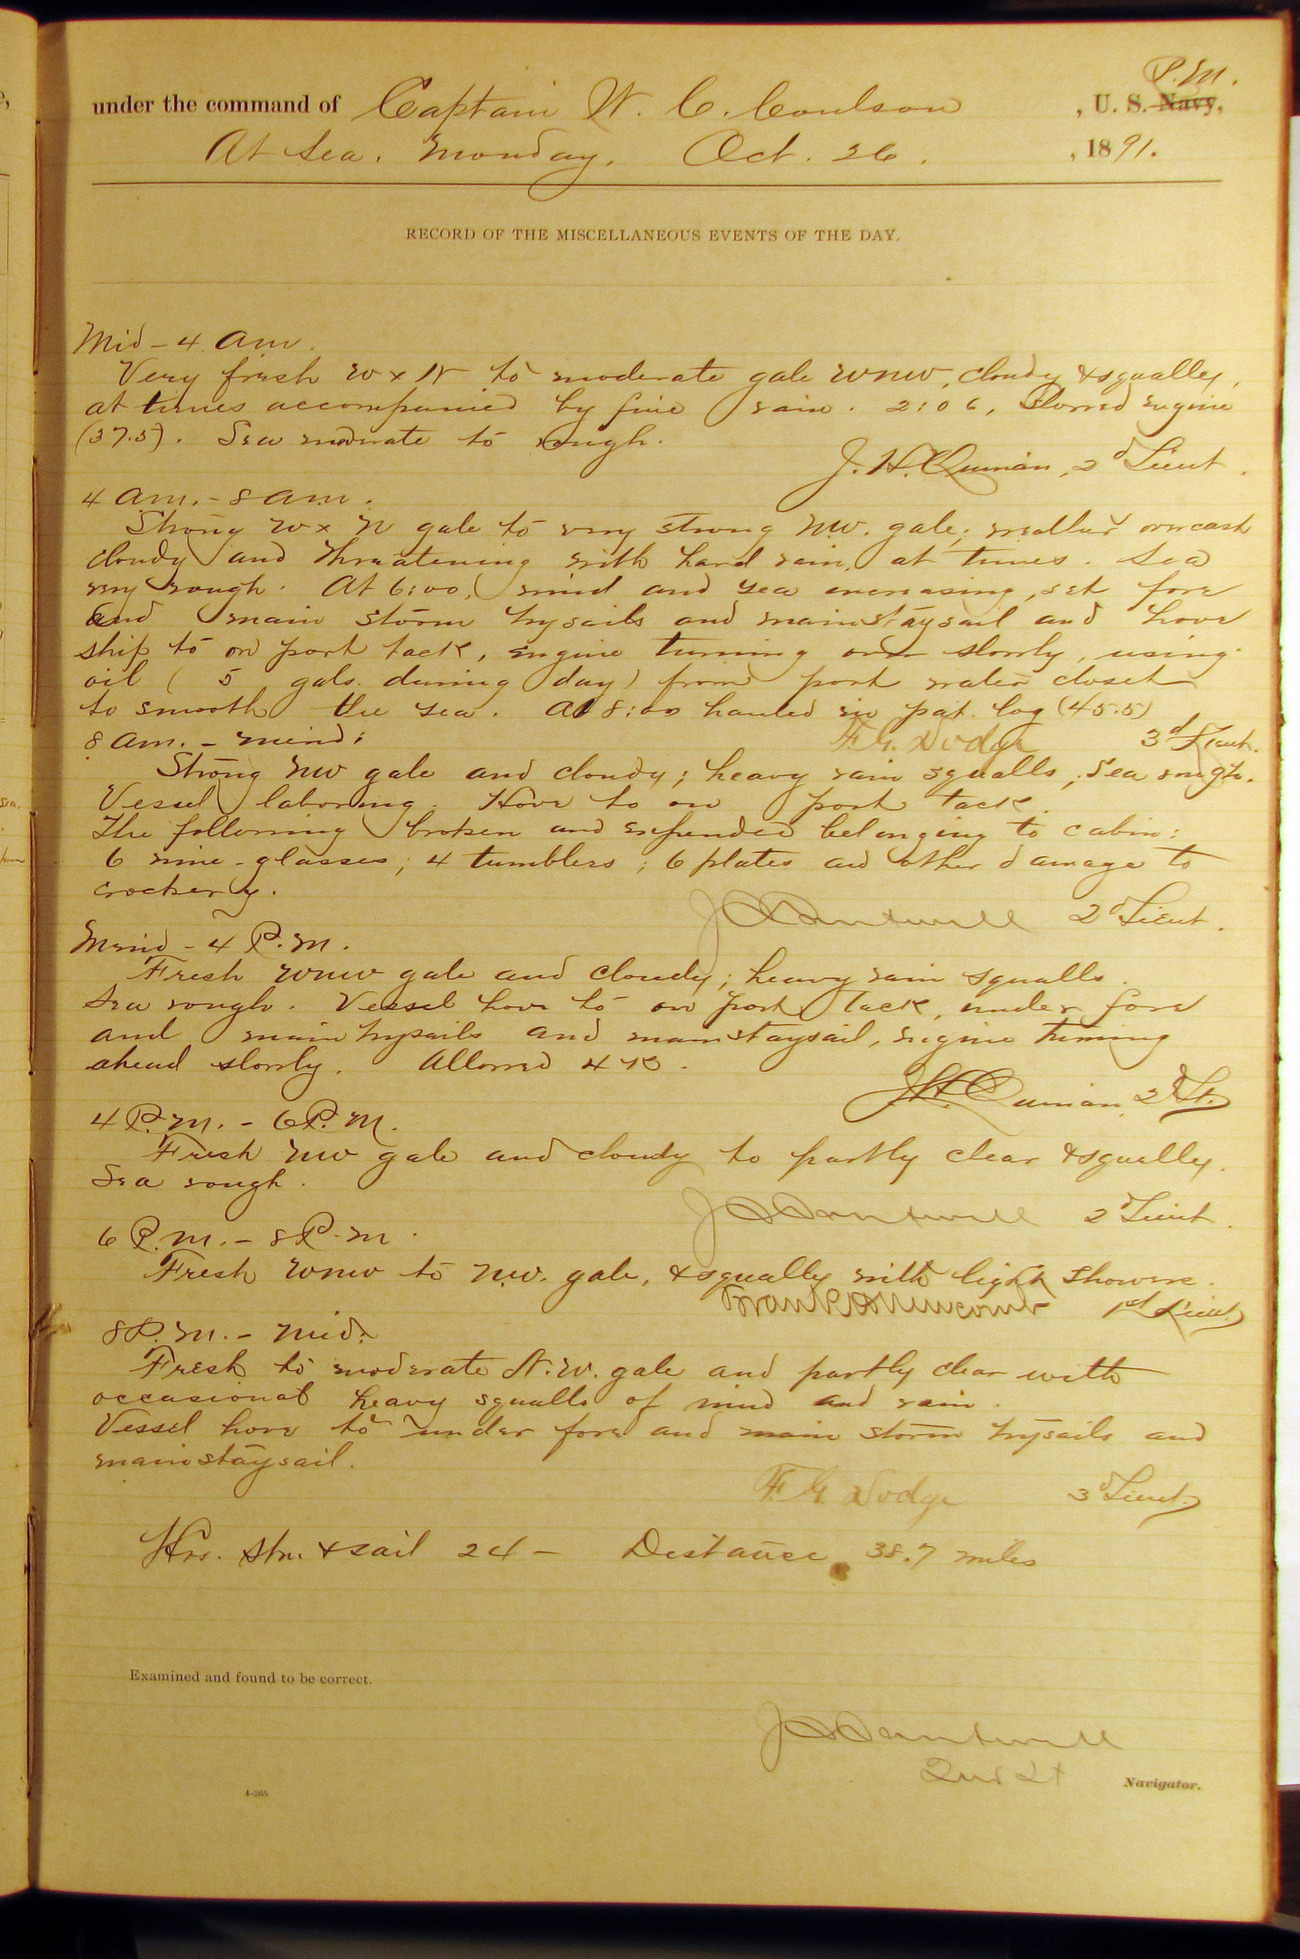 P. M.
under the command of Captain W. C. Coulson , U. S. Navy,
At Sea. Monday, Oct. 26. , 1891.
RECORD OF THE MISCELLANEOUS EVENTS OF THE DAY.
Mid - 4 am.
Very fresh W x N to moderate gale WNW, cloudy & squally,
at times accompanied by fine rain. 2:06, Slowed engine
(37.5). Sea moderate to rough.
J. H. Quinan, 2d Lieut.
4 am. - 8 am.
Strong W x N gale to very strong NW. gale; weather overcast
cloudy and threatening with hard rain, at times. Sea
very rough. At 6:00, wind and sea increasing, set fore
and main storm trysails and mainstaysail and hove
ship to on port tack, engine turning over slowly, using
oil (5 gals. during day) from port water closet
to smooth the sea. At 8:00 hauled in pat. log (45.5)
F. G. Dodge 3d Lieut.
8 am. - merid:
Strong NW gale and cloudy; heavy rain squalls, Sea rough.
Vessel laboring. Hove to on port tack.
The following broken and expended belonging to cabin:
6 wine-glasses; 4 tumblers; 6 plates and other damage to
crockery.
J C Cantwell 2d Lieut.
Merid - 4 P.M.
Fresh WNW gale and cloudy; heavy rain squalls.
Sea rough. Vessel hove to on port tack, under fore
and main trysails and mainstaysail, engine turning
ahead slowly. Allowed 4 K.
J H Quinan 2d Lt.
4 P.M. - 6 P.M.
Fresh NW gale and cloudy to partly clear & squally.
Sea rough.
J C Cantwell 2d Lieut.
6 P.M. - 8 P.M.
Fresh WNW to N.W. gale, & squally with light showers.
Frank H Newcomb 1st Lieut.
8 P.M. - Mid.
Fresh to moderate N.W. gale and partly clear with
occasional heavy squalls of wind and rain.
Vessel hove to under fore and main storm trysails and
mainstaysail.
F. G. Dodge 3d Lieut.
Hrs. stm. & sail 24 - Distance 38.7 miles
Examined and found to be correct.
J C Cantwell
2nd Lt Navigator.
4-265